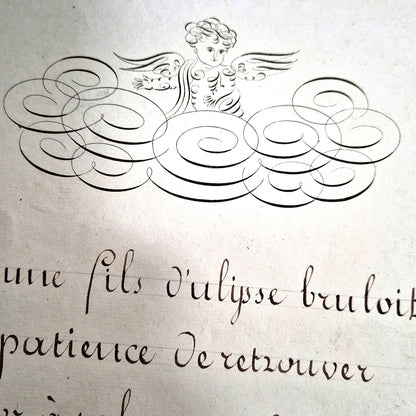 une fils d'ulysse bruloit
patience de retrouver